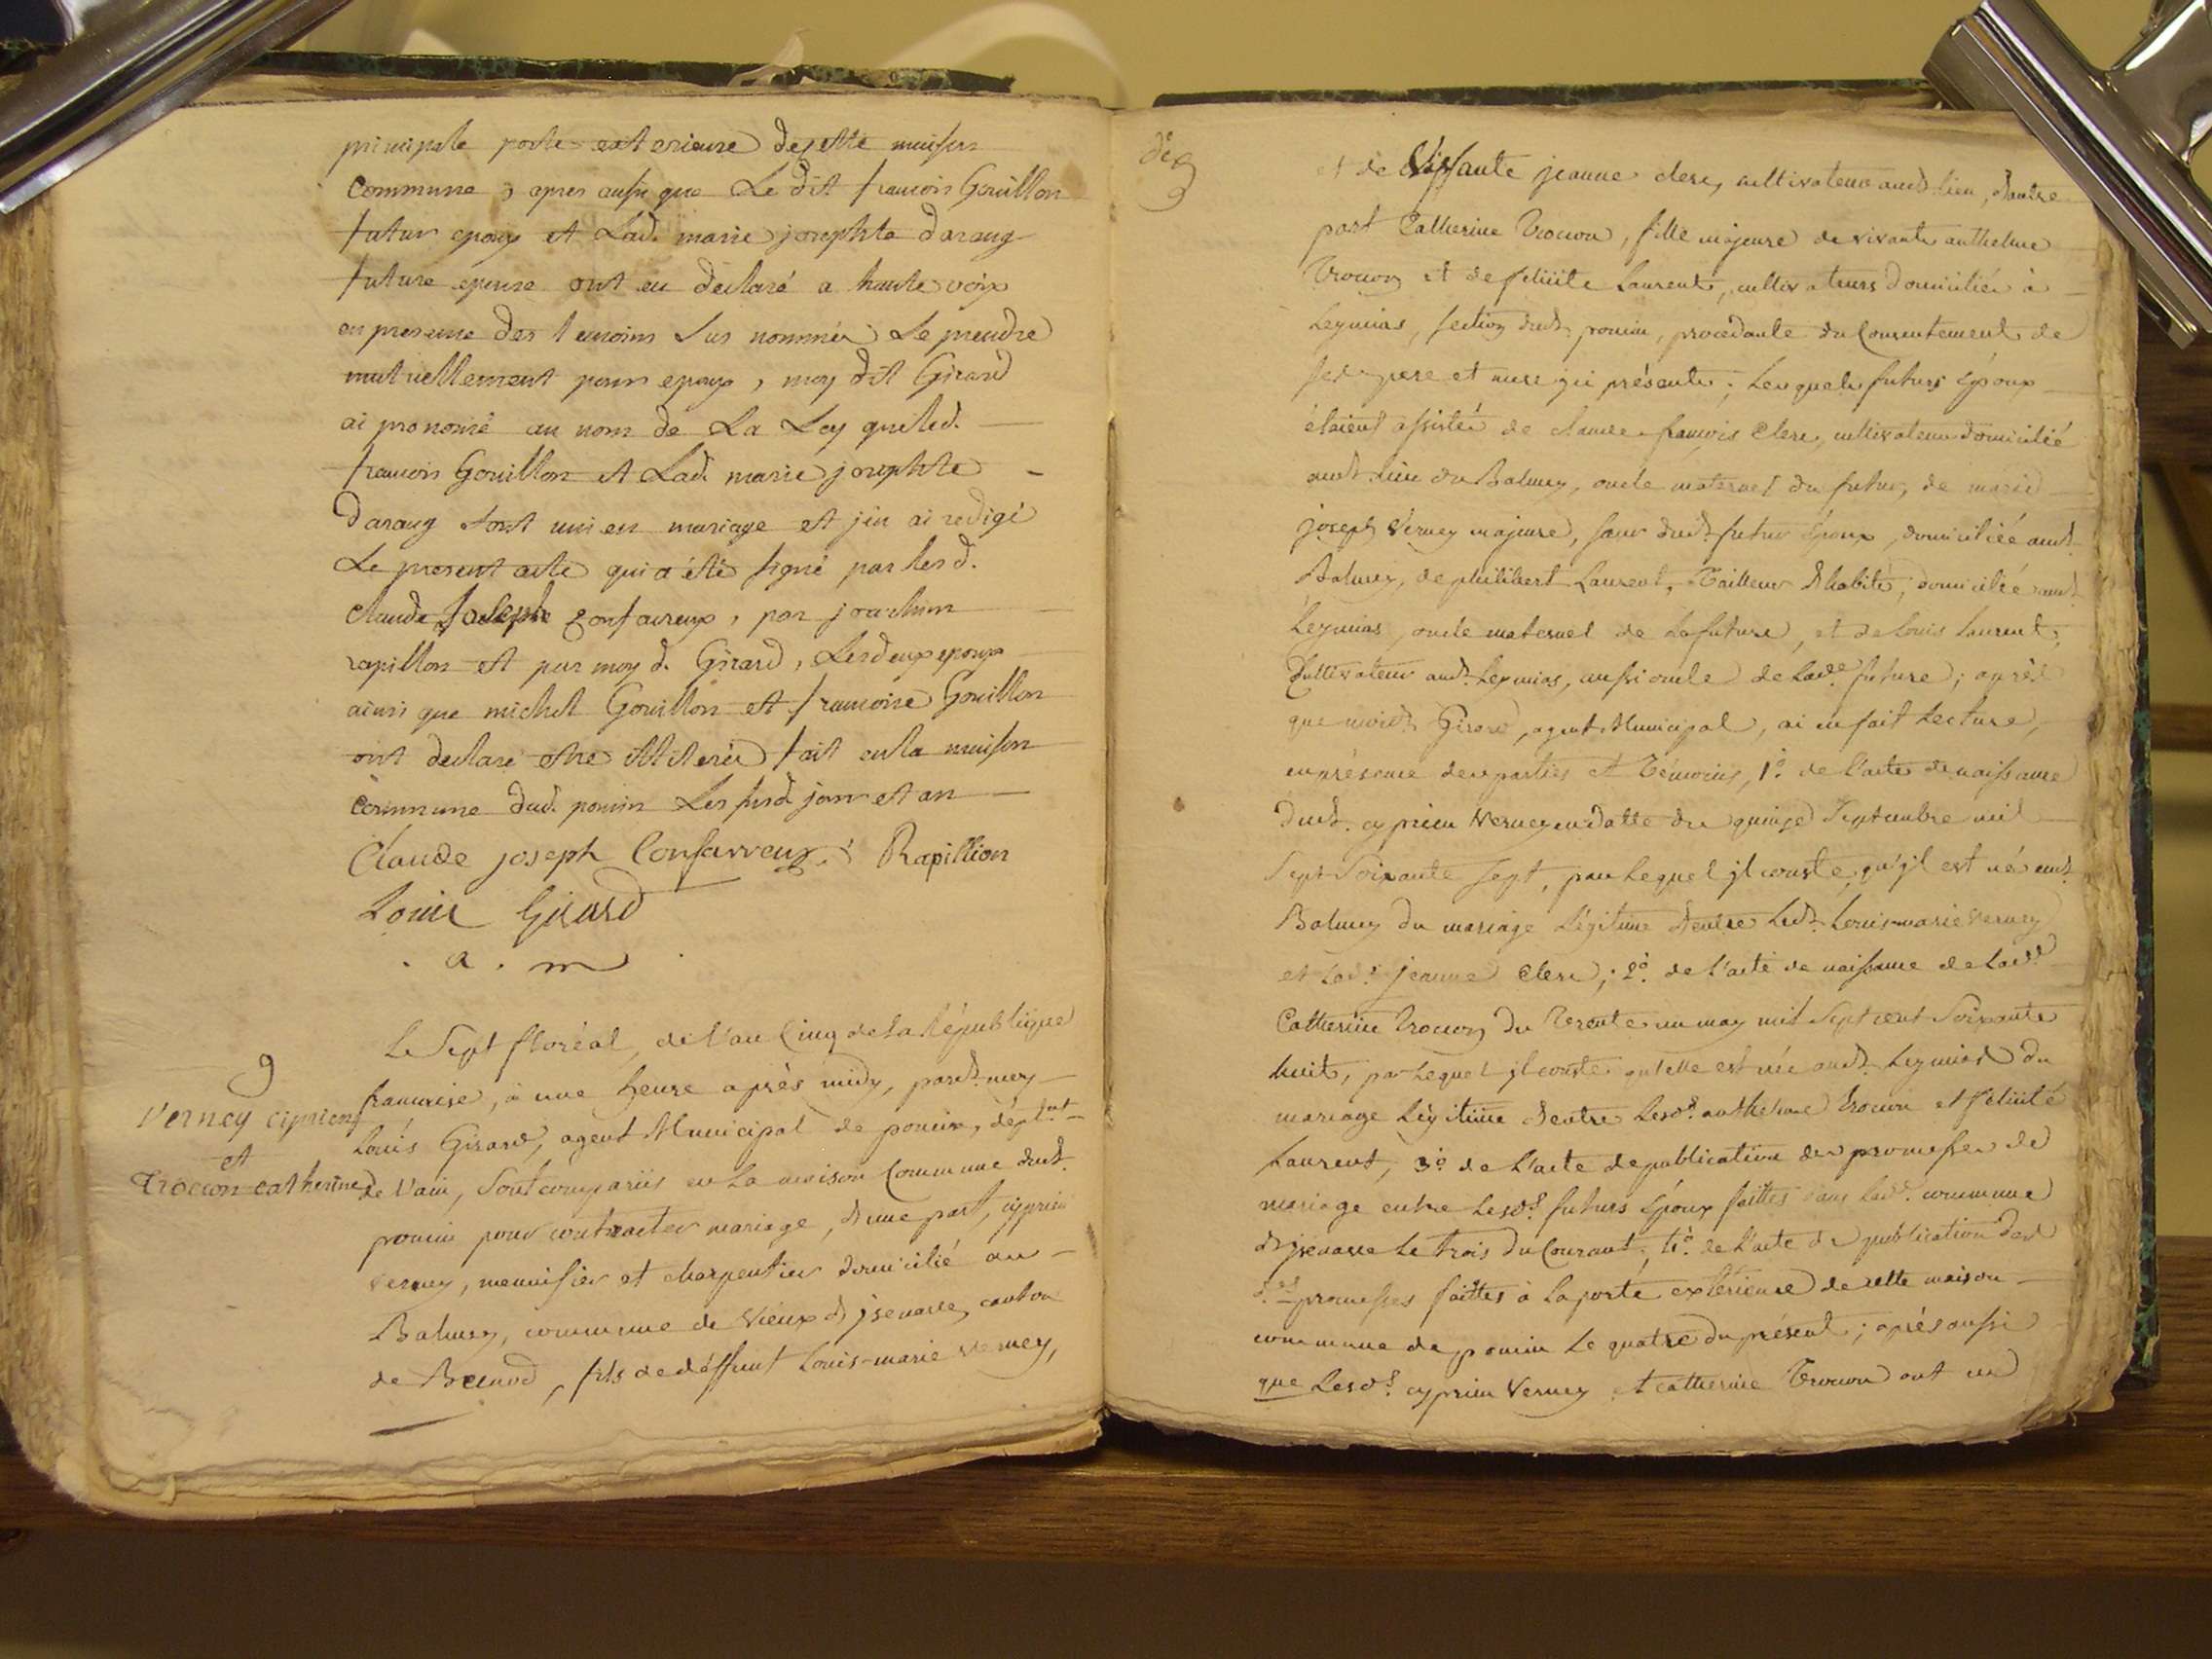 principale porte exterieure de cette maison
Commune, apres aussi que Le dit francois Gouillon
futur epoux et Lad. marie josephte darang
future epouse ont eu declaré a haute voix
en presence des temoins Sus nommés Le prendre
mutuellement pour epoux, moy dit Girard
ai prononcé au nom de La Loy que led.
francois Gouillon et Lad. marie josephte
darang sont unis en mariage et j'en ai redigé
Le present acte qui a été signé par les d.
Claude Joseph gonfavreux, par joachim
rapillon et par moy d. Girard, Lesdeux epoux
ainsi que michel Gouillon et francoise Gouillon
ont declaré etre illiterés fait en la maison
commune dud. poncin Les susd. jour et an
Claude joseph Confavreux Rapillion
Louis Girard
a. m
9
Verney ciprien
et
Trocon catherine
Le Sept floréal, de l'an Cinq de la République
francaise, à une heure après midy, pardt. moy
Louis Girard, agent Municipal de poncin, déptmt.
de l'ain, Sont comparus en la maison Commune dudt.
poncin pour contracter mariage, d'une part, cyprien
verney, menuisier et charpentier domicilié au
Balmey, commune de Vieux d'jzenave, canton
de Brenod, fils de déffunt Louis-marie verney,
et de Vissante jeanne clerc, cultivateurs audt. lieu, d'autre
part Catherine Trocon, fille majeure de vivants anthelme
Trocon et de félicité Laurent, cultivateurs domiciliés à
Leymias, section dudt. poncin, procédante du Consentement de
ses pere et mere ici présents; Lesquels futurs époux
étaient assistés de claude-francois Clerc, cultivateur domicilié
audt. lieu du Balmey, oncle maternel du futur, de marie
joseph Verney majeure, soeur dudt. futur époux, domiciliée audt.
Balmey, de philibert Laurent, Tailleur d'habits, domicilié audt.
Leymias, oncle maternel de la future, et de Louis Laurent,
Cultivateur audt. Leymias, aussi oncle de lade. future; après
que moidt. Girard, agent Municipal, ai eu fait lecture,
en présence des parties et Témoins, 1.° de l'acte de naissance
dudt. cyprien Verney en datte du quinze Septembre mil
Sept Soixante sept, par lequel jl conste qu'jl est né audt.
Balmey du mariage Légitime d'entre ledt. Louis-marie Verney
et lade. jeanne Clerc; 2.° de l'acte de naissance de lade.
Catherine Trocon du trente un may mil Sept cent Soixante
huit, par lequel jl conste qu'elle est née audt. Leymias du
mariage Légitime d'entre Lesds. anthelme Trocon et félicité
Laurent, 3.° de l'acte de publication des promesses de
mariage entre Lesds. futurs époux faittes dans lade. commune
d'jzenave le trois du Courant; 4.° de l'acte de publication des
dtes. promesses faittes à la porte extérieure de cette maison
commune de poncin le quatre du présent; après aussi
que Lesds. cyprien Verney et catherine Trocon ont eu